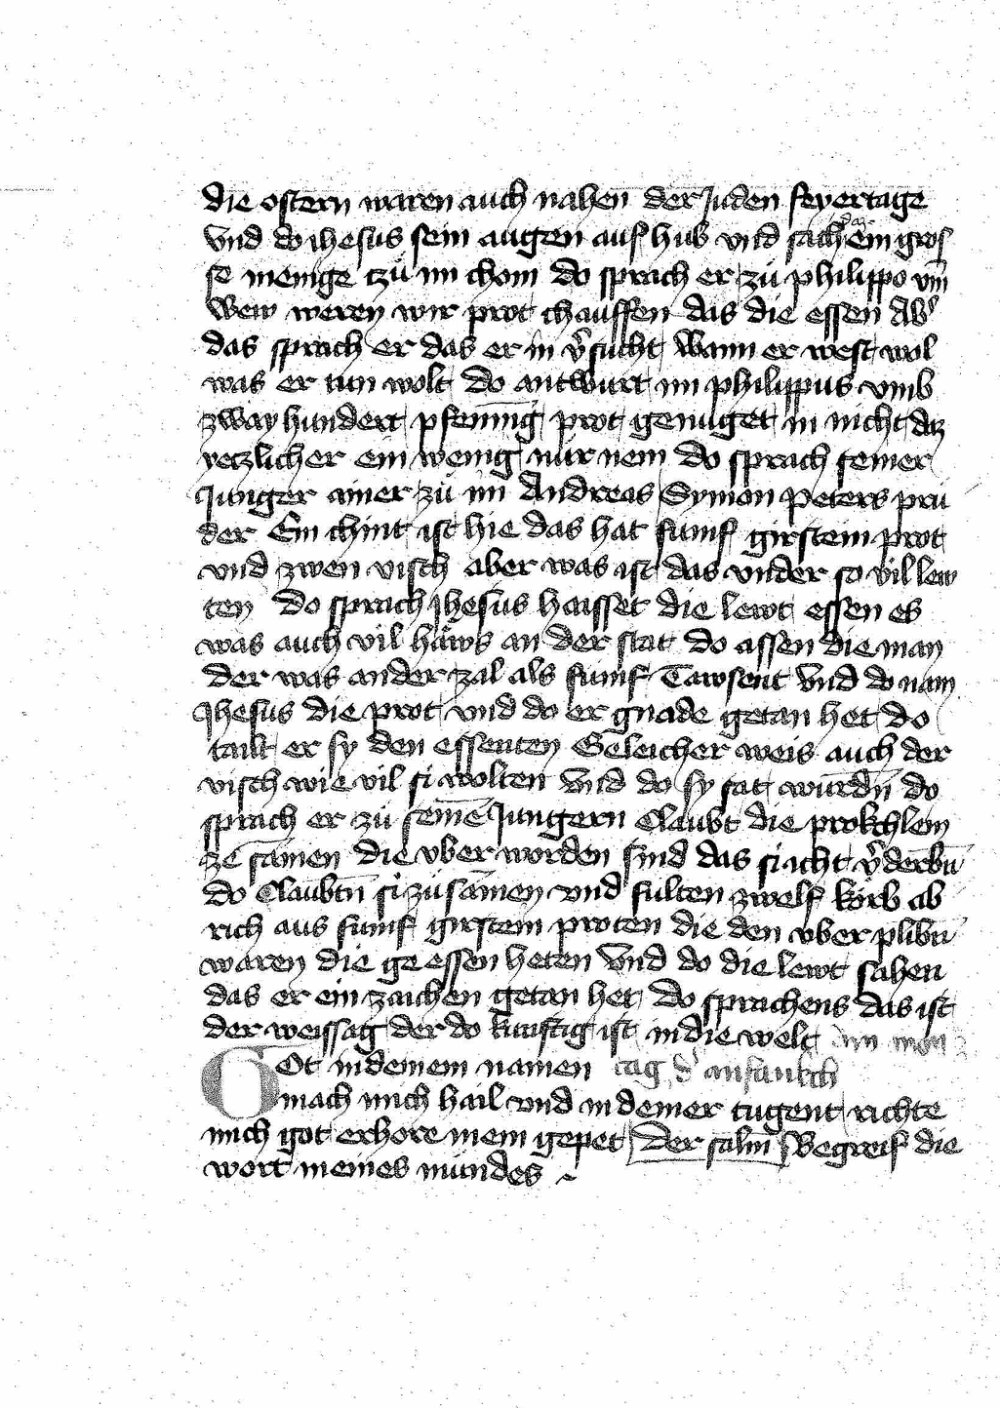 die ostern waren auch nahen der Juden feyertage
vnd do ihesus sein augen auf hub vnd sach das ein gros
se menige tzů im chom do sprach er zů philippo vm̄
wew weren wir prot chauffen das die essen Ab̾
das sprach er das er in v̾sucht wann er west wol
was er tun wolt do antwurt im philippus vmb
zway hundert pfennīg prot genuget in nicht daz
yetzlicher ein wenig nur nem do sprach seiner
Junger ainer zů im Andreas Symon Peters prů
der Ein chint ist hie das hat fumf girstein prot
vnd zwen visch aber was ist das vnder so vil lew
ten do sprach Jhesus haisset die lewt essen es
was auch vil häws an der stat do assen die man
der was an der zal als fumf Tawsent Vnd do nam
Jhesus die prot vnd do er gnade getan het do
tailt er sy den essenten Geleicher weis auch der
visch wie vil si wolten Vnd do sy sat wurdn̄ do
sprach er zů seinē Jungern Claubt die prokchlem
ze samen die vber worden sind das si icht v̾derbn̄
do Claubtn̄ si zusāmen vnd fulten zwelf körb ab
rich aus fumf girstein proten die den vber plibn̄
waren die ge essen heten Vnd do die lewt sahen
das er ein zaichen getan het do sprachens das ist
der weissag der do kunftig ist in die welt Am mon
GOt in deinem namen tag d̾ anfankch
mach mich hail vnd in deiner tugent richte
mich got erhore mein gepet Der salm̄ Begreif die
wort meines mundes ~